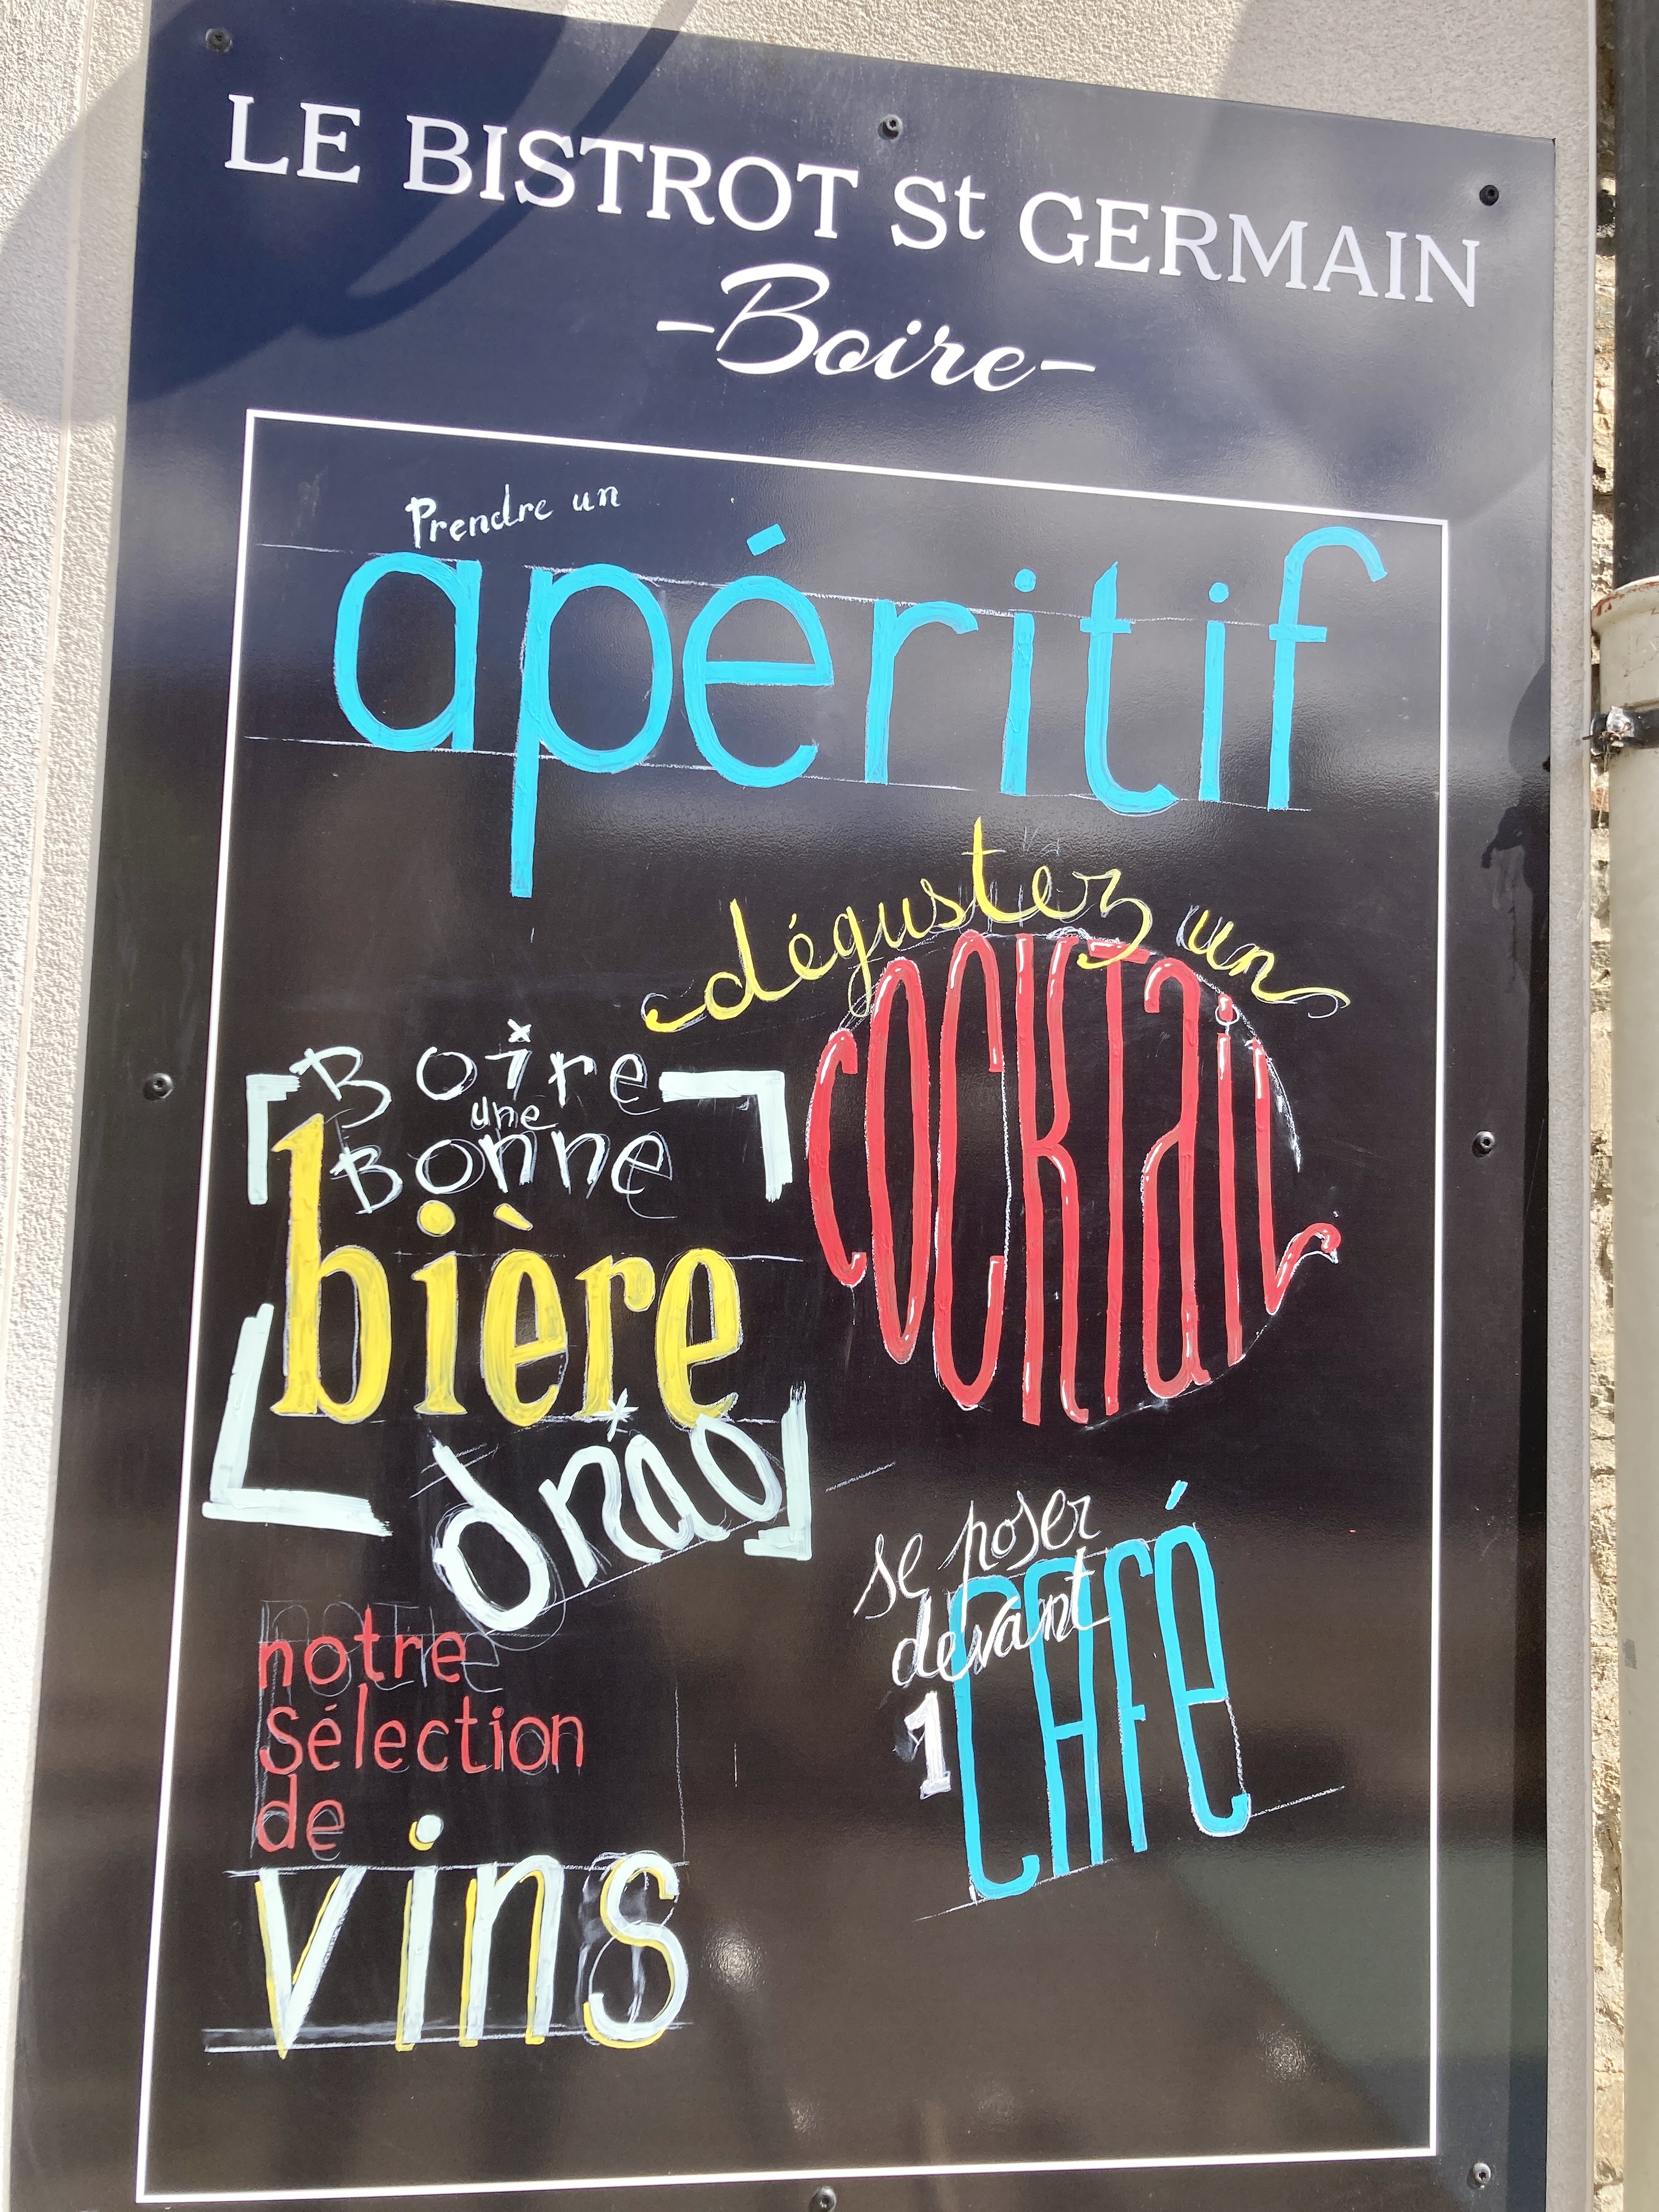 LE BISTROT St GERMAIN
-Boire-
Prendre un
apéritif
dégustez un
COCKTail
Boire
une
Bonne
bière
notre
Sélection
de
vins
se poser
devant
1
CAFé